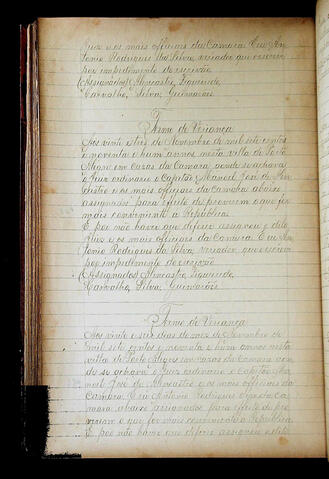 Juiz e os mais officiaes da Camara Eu An
tonio Rodrigues da Silva, vereador que escrevi
por impedimento do escrivão
(Assignados) Alencastre, Siqueira,
Carvalho, Silva, Guimarães
Termo de Veriança
Aos vinte e tres de Novembro de mil sete centos
e noventa e hum annos nesta villa de Porto
Alegre em cazas da Camara aonde se achava
o Juiz ordinario o Capitão Manoel José de Alen
castro e os mais officiaes da Camara abaixo
assignados para effeito de proverem o que for
mais conveniente a Republica
E por não haver que deferir assignou o dito
Juiz e os mais officiaes da Camara E eu An
tonio Rodrigues da Silva, vereador, que escrevi
por impedimento do escrivão
(Assignados) Alencastre, Siqueira,
Carvalho, Silva, Guimarães
Termo de Veriança
Aos vinte e seis dias do mez de Novembro de
mil sete centos e noventa e hum annos nesta
villa de Porto Alegre em cazas da Camara aon
de se achava o Juiz ordinario o Capitão Ma
noel José de Alencastro e os mais officiaes da
Camara Eu Antonio Rodrigues
mara abaixo assignados para effeito de pro
verem o que for mais conveniente a Republica
E por não haver que deferir assignou o dito